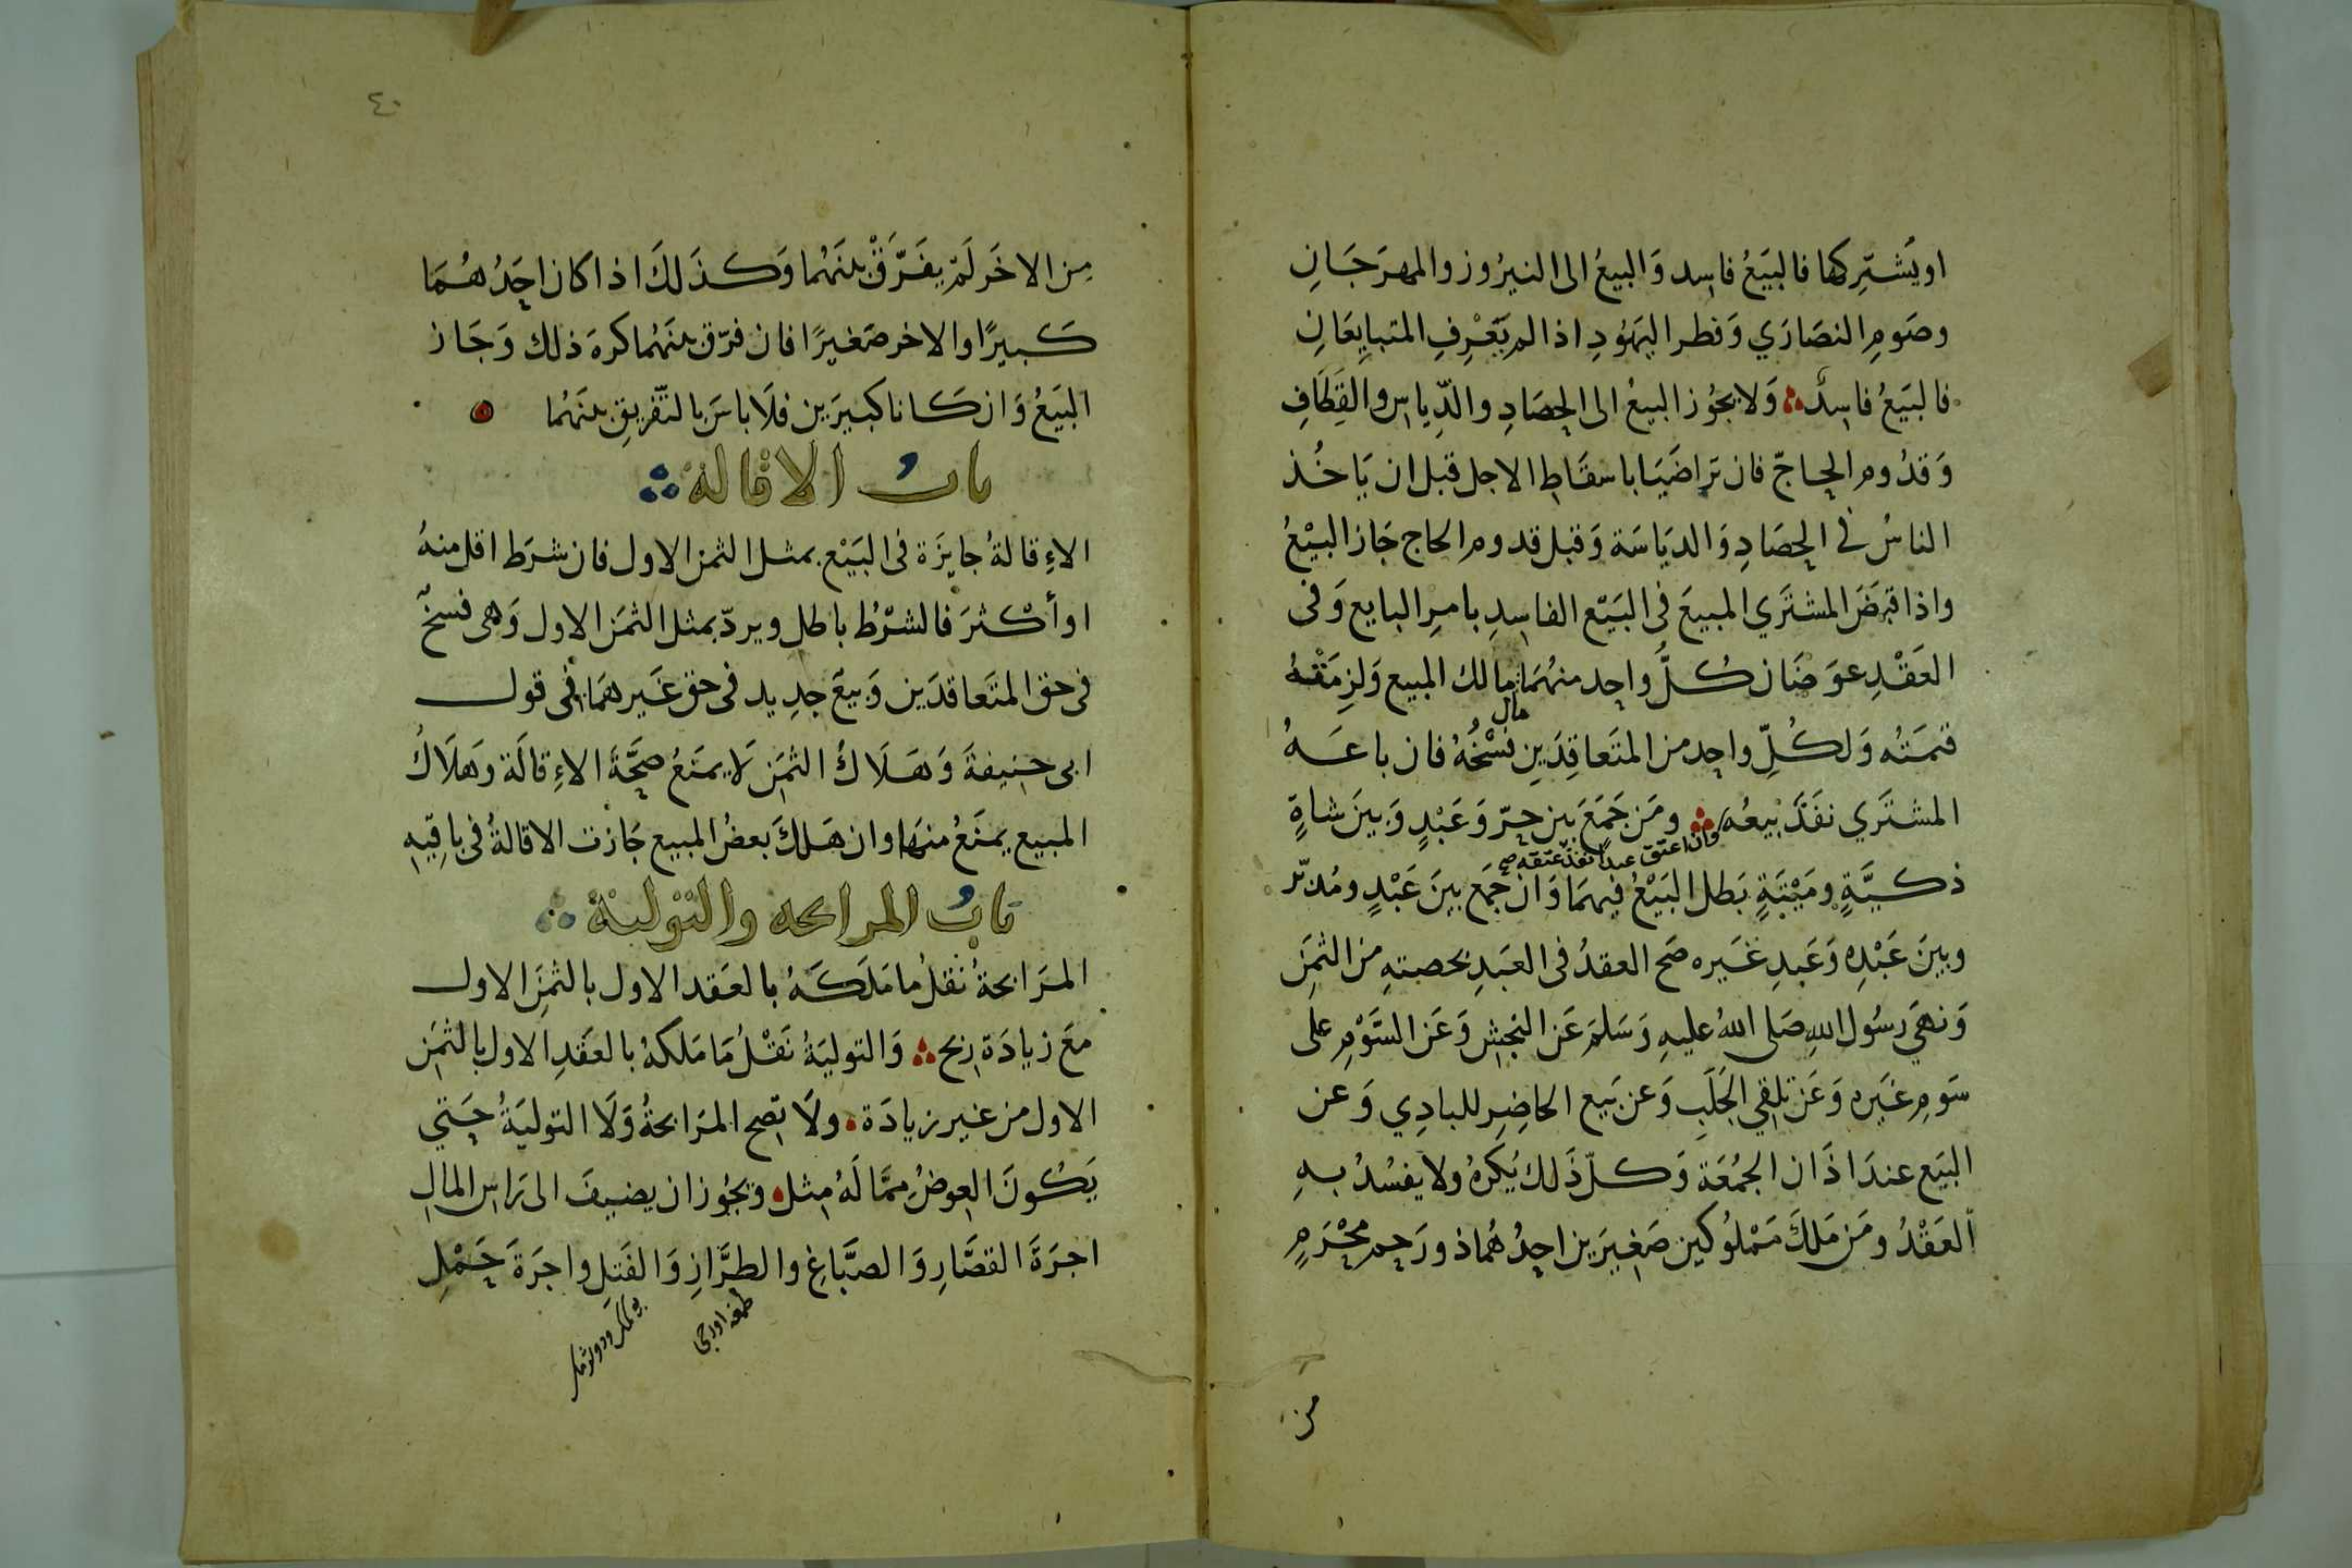 او يَشترِكها فالبَيَعُ فاسِد وَالبيعُ الى النيرُوز والمهرَجَانِ
وصَومِ النصَارَي وَفطر اليهُودِ اذا لم يَعْرِفِ المتبايِعَانِ
فالبَيَعُ فاسِدٌ وَلا يجُوز البيعُ الى الحِصَادِ والدِّياسِ والقِطَافِ
وَقدُوم الحاجّ فان تراضَيَا باسقَاطِ الاجل قبل ان يَاخُذ
الناسُ في الحصَادِ وَالديَاسَة وَقبل قدوم الحاج جَاز البيْعُ
واذا قبضَ المشترَي المبيعَ فى البَيْع الفاسِدِ بامرِ البايع وَفى
العَقْدِ عوَضَان كُلُّ واحِد منهُمَا مالك المبيع وَلزِمَتْهُ
مال
قيمَتُه وَلكُلِّ واحِد من المتَعاقِدَينِ فسْخُهُ فان باعَهُ
المشترَي نفَذَ بَيعُه ومَن جَمَعَ بَين حِرّ وَعَبْدٍ وَبينَ شاةٍ
وان اعتق عبدًا نفذ عتقه صح
ذكيَّةٍ ومَيْتَةٍ بَطل البَيْعُ فيهمَا وَان جمَع بينَ عَبْدٍ ومُدبّر
وبينَ عَبْدِه وَعَبدِ غَيره صَح العقدُ فى العَبَدِ بحصتهِ من الثمَنِ
وَنهَي رسُول اللهِ صَلى اللهُ عليهِ وَسَلمَ عَن النجشِ وَعَن السَّوْمِ على
سَومِ غيَره وَعَن تلقي الجَلَبِ وَعن بَيع الحاضِرِ للبادِي وَعن
البَيَع عندَ اذَان الجمُعَة وَكلّ ذَلك يُكرهُ ولا يفسُدُ بهِ
العَقْدُ ومَن مَلكَ مَمْلوُكين صَغِيرَين احِدُهُما ذو رَحِم مِحْرَمٍ
من
٤٠
مِن الاخَر لَمْ يفَرَّقْ بينَهُما وَكذَلكَ اذا كان احِدُهُمَا
كَبيرًا والاخر صَغيرًا فان فرّق بينَهُما كرهَ ذلك وَجَاز
البَيَعُ وَان كَانا كبيرَين فلَا باسَ بالتّفريقِ بينَهُما
بابُ الاقالة
الاءِقالةُ جايزَة فى البَيْع بمثل الثمن الاول فان شرَط اقل منهُ
او أكْثرَ فالشرْطُ باطل ويردّ بمثل الثمَن الاول وَهى فسخٌ
فى حق المتَعاقدَين وَبيعٌ جدِيد فى حق غَير همَا فى قول
ابى حنِيفةَ وَهَلَاكُ الثمَنِ لَا يمنَعُ صحَّةَ الاءِقالَة وَهَلَاكُ
المبيع يمنَعُ منهَا وان هَلكَ بعضُ المبيع جَازت الاقالةُ فى باقِيهِ
بابُ المرابحه والتولية
المرَابحةُ نقلُ ما مَلَكَهُ بالعَقد الاول بالثمَنِ الاول
معَ زيادَة ربح وَالتوليَةُ نَقْلُ مَا مَلكهُ بالعقَدِ الاول بالثمَنِ
الاول من غير زيادَة ولَا تصح المرَابحةُ وَلَا التوليَةُ حَتي
يَكُونَ العِوضُ مِمَّا لَهُ مِثل وَيجُوز ان يضيفَ الى رَاسِ المالِ
اجرَةَ القصَّارِ وَالصبَّاغِ والطرَّازِ وَالفَتلِ واجرَةَ حَمْلِ